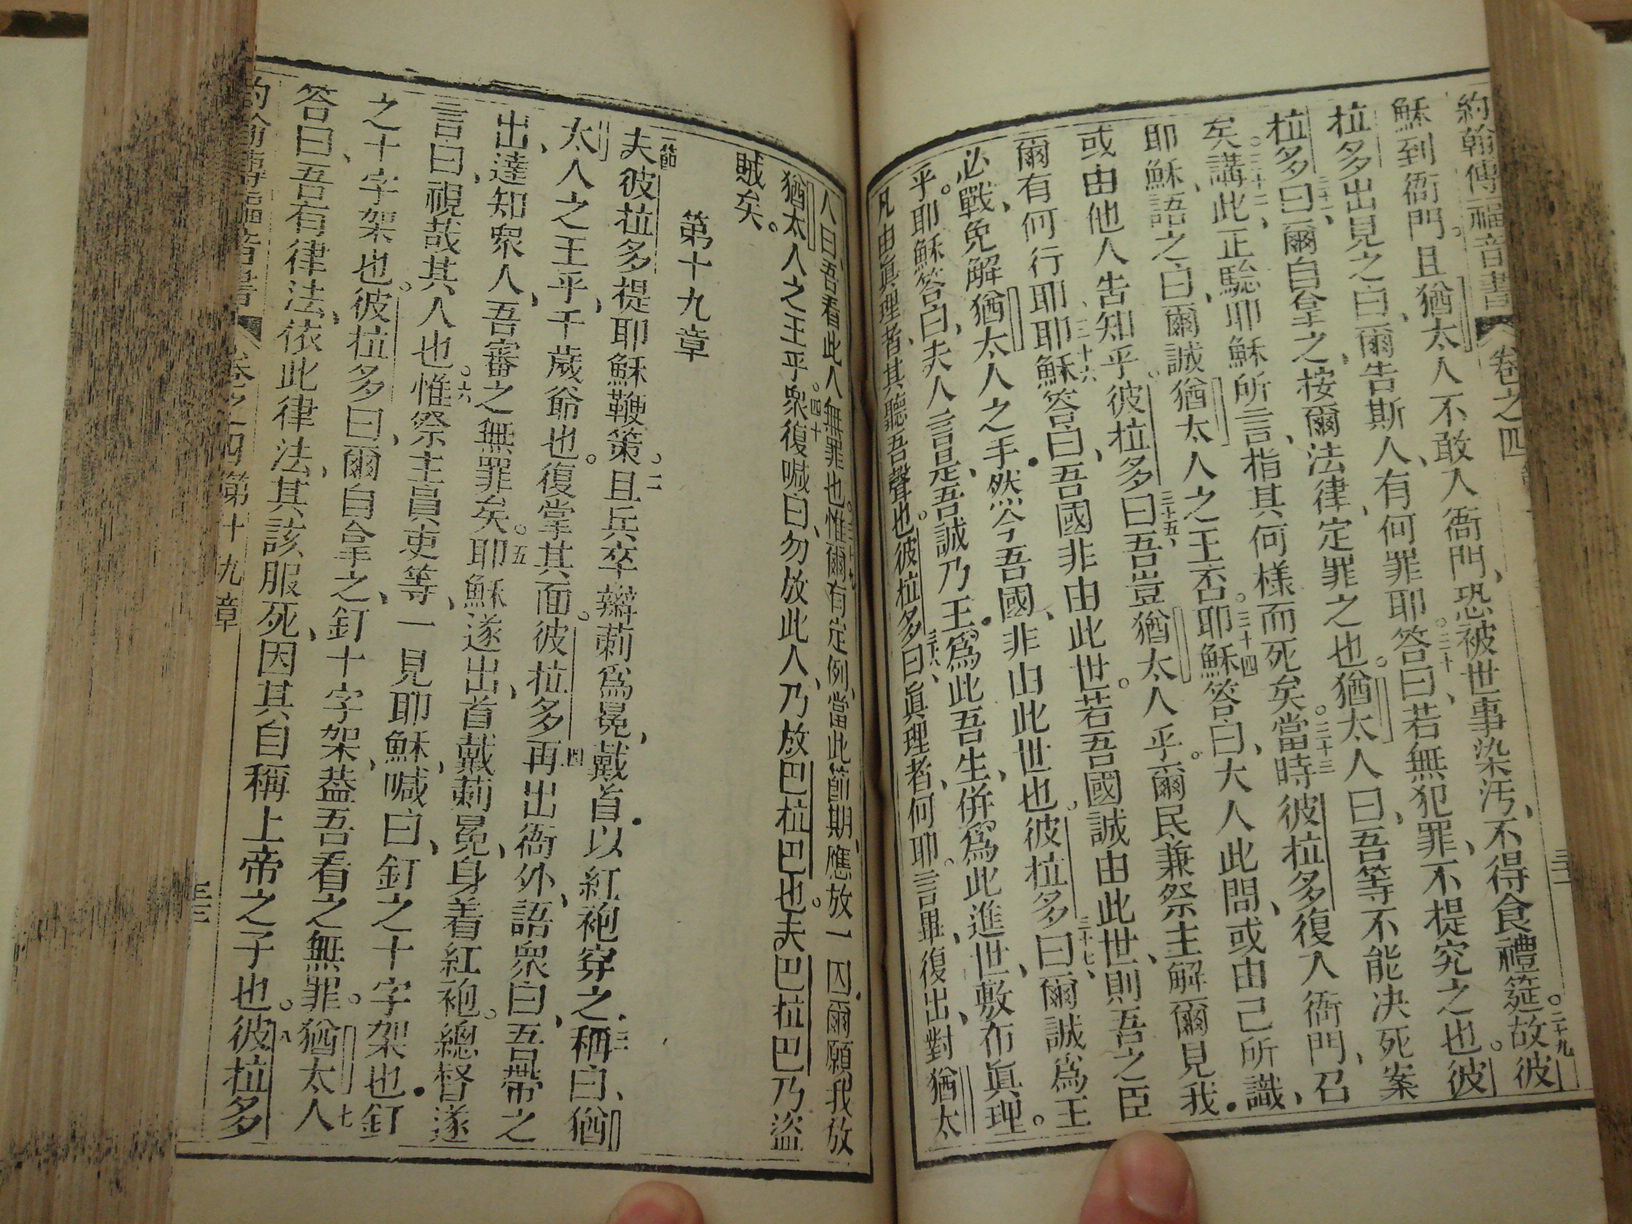 約翰傳福音書 卷之四
穌到衙門。且猶太人不敢入衙門、恐被世事染污、不得食禮筵。二十九故彼
拉多出見之曰、爾告斯人、有何罪耶。三十答曰、若無犯罪、不提究之也。彼
拉多曰、爾自拿之、按爾法律、定罪之也。猶太人曰、吾等不能决死案
矣。三十二講此正騐耶穌所言、指其何樣而死矣。三十三當時彼拉多、復入衙門、召
耶穌、語之曰、爾誠猶太人之王否。三十四耶穌答曰、大人此問、或由己所識、
或由他人告知乎。三十五彼拉多曰、吾豈猶太人乎。爾民兼祭主、解爾見我
爾有何行耶。三十六耶穌答曰、吾國非由此世。若吾國誠由此世、則吾之臣
必戰免解猶太人之手。然今吾國、非由此世也。三十七彼拉多曰、爾誠爲王
乎。耶穌答曰、夫人言是、吾誠乃王。爲此吾生、併爲此進世、敷布眞理。
凡由眞理者、其聽吾聲也。三十八彼拉多曰、眞理者、何耶。言畢、復出對猶太
人曰、吾看此人無罪也。三十九惟爾有定例、當此節期、應放一囚、爾願我放
猶太人之王乎。四十衆復喊曰、勿放此人、乃放巴拉巴也。夫巴拉巴乃盜
賊矣。
第十九章
一節夫彼拉多提耶穌鞭策。二且兵卒辮莿爲冕、戴首、以紅袍穿之。三稱曰、猶
太人之王乎、千歲爺也。復掌其面。四彼拉多再出衙外、語衆曰、吾帶之
出、達知衆人、吾審之無罪矣。五耶穌遂出、首戴莿冕、身着紅袍。總督遂
言曰、視哉其人也。六惟祭主員吏等、一見耶穌、喊曰、釘之十字架也、釘
之十字架也。彼拉多曰、爾自拿之、釘十字架、葢吾看之無罪。七猶太人
答曰、吾有律法、依此律法、其該服死、因其自稱上帝之子也。八彼拉多
約翰傳福音書 卷之四 第十九章